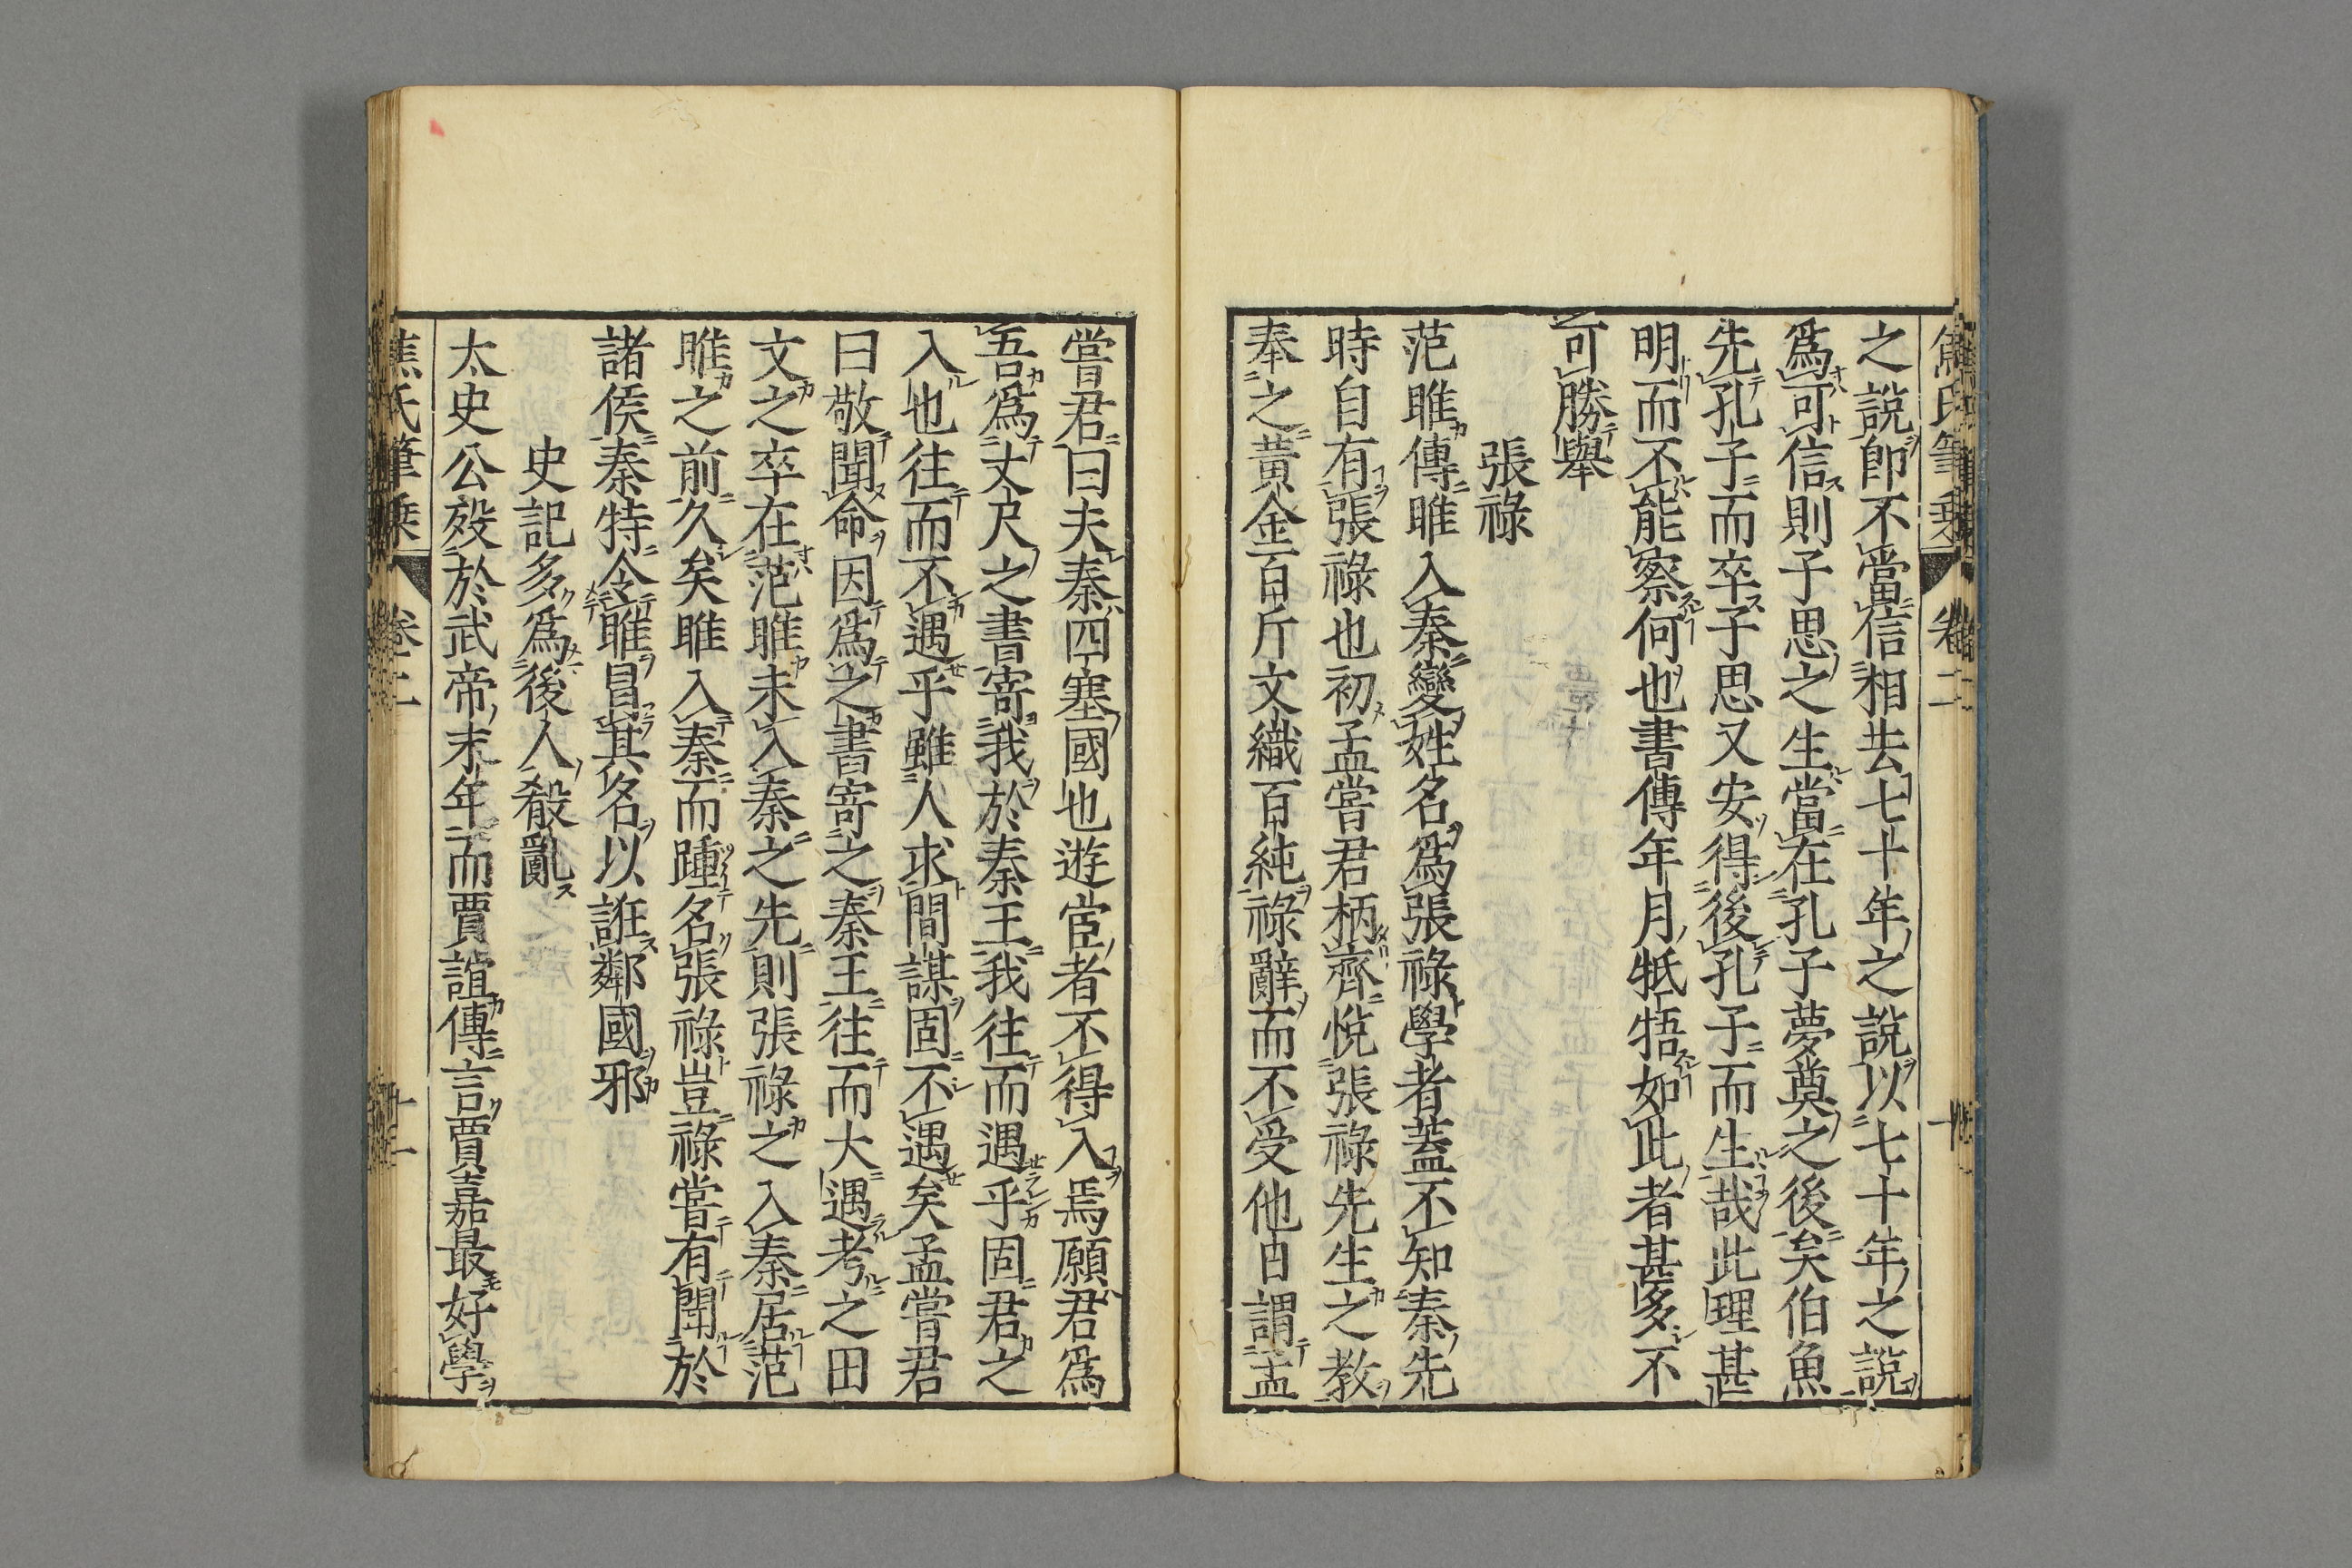 之說卽不當信相去七十年之說以七十年之說
爲可信則子思之生當在孔子夢奠之後矣伯魚
先孔子而卒子思又安得後孔子而生哉此理甚
明而不能察何也書傳年月牴牾如此者甚多不
可勝舉
張祿
范雎傳雎入秦變姓名爲張祿學者蓋不知秦先
時自有張祿也初孟嘗君柄齊悅張祿先生之教
奉之黃金百斤文織百純祿辭而不受他日謂孟
嘗君曰夫秦四塞國也遊宦者不得入焉願君爲
吾爲丈尺之書寄我於秦王我往而遇乎固君之
入也往而不遇乎雖人求間謀固不遇矣孟嘗君
曰敬聞命因爲之書寄之秦王往而大遇考之田
文之卒在范雎未入秦之先則張祿之入秦居范
雎之前久矣雎入秦而踵名張祿豈祿嘗有聞於
諸侯秦特令雎冒其名以誑鄰國邪
史記多爲後人殽亂
太史公歿於武帝末年而賈誼傳言賈嘉最好學
焦氏筆乘 卷二 十二